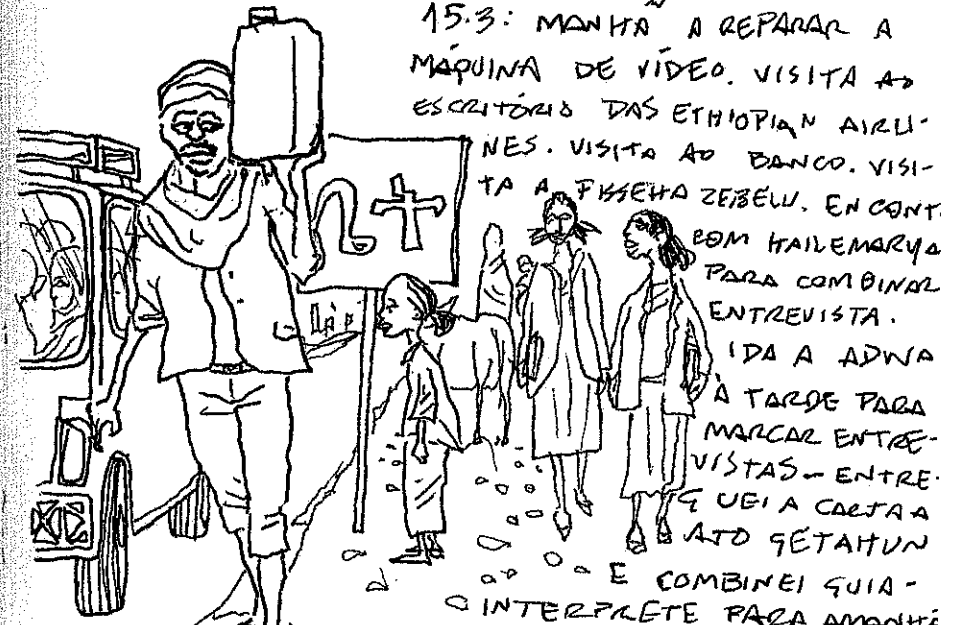 15.3: MANHÃ A REPARAR A
MÁQUINA DE VÍDEO. VISITA AO
ESCRITÓRIO DAS ETHIOPIAN AIRLI-
NES. VISITA AO BANCO. VISI-
TA A FISSEHA ZEBELU. ENCONT.
COM HAILEMARYA
PARA COMBINAR
ENTREVISTA.
IDA A ADWA
À TARDE PARA
MARCAR ENTRE-
VISTAS - ENTRE-
GUEI A CARTA A
ATO GETAHUN
E COMBINEI GUIA-
INTERPRETE PARA AMANHÃ